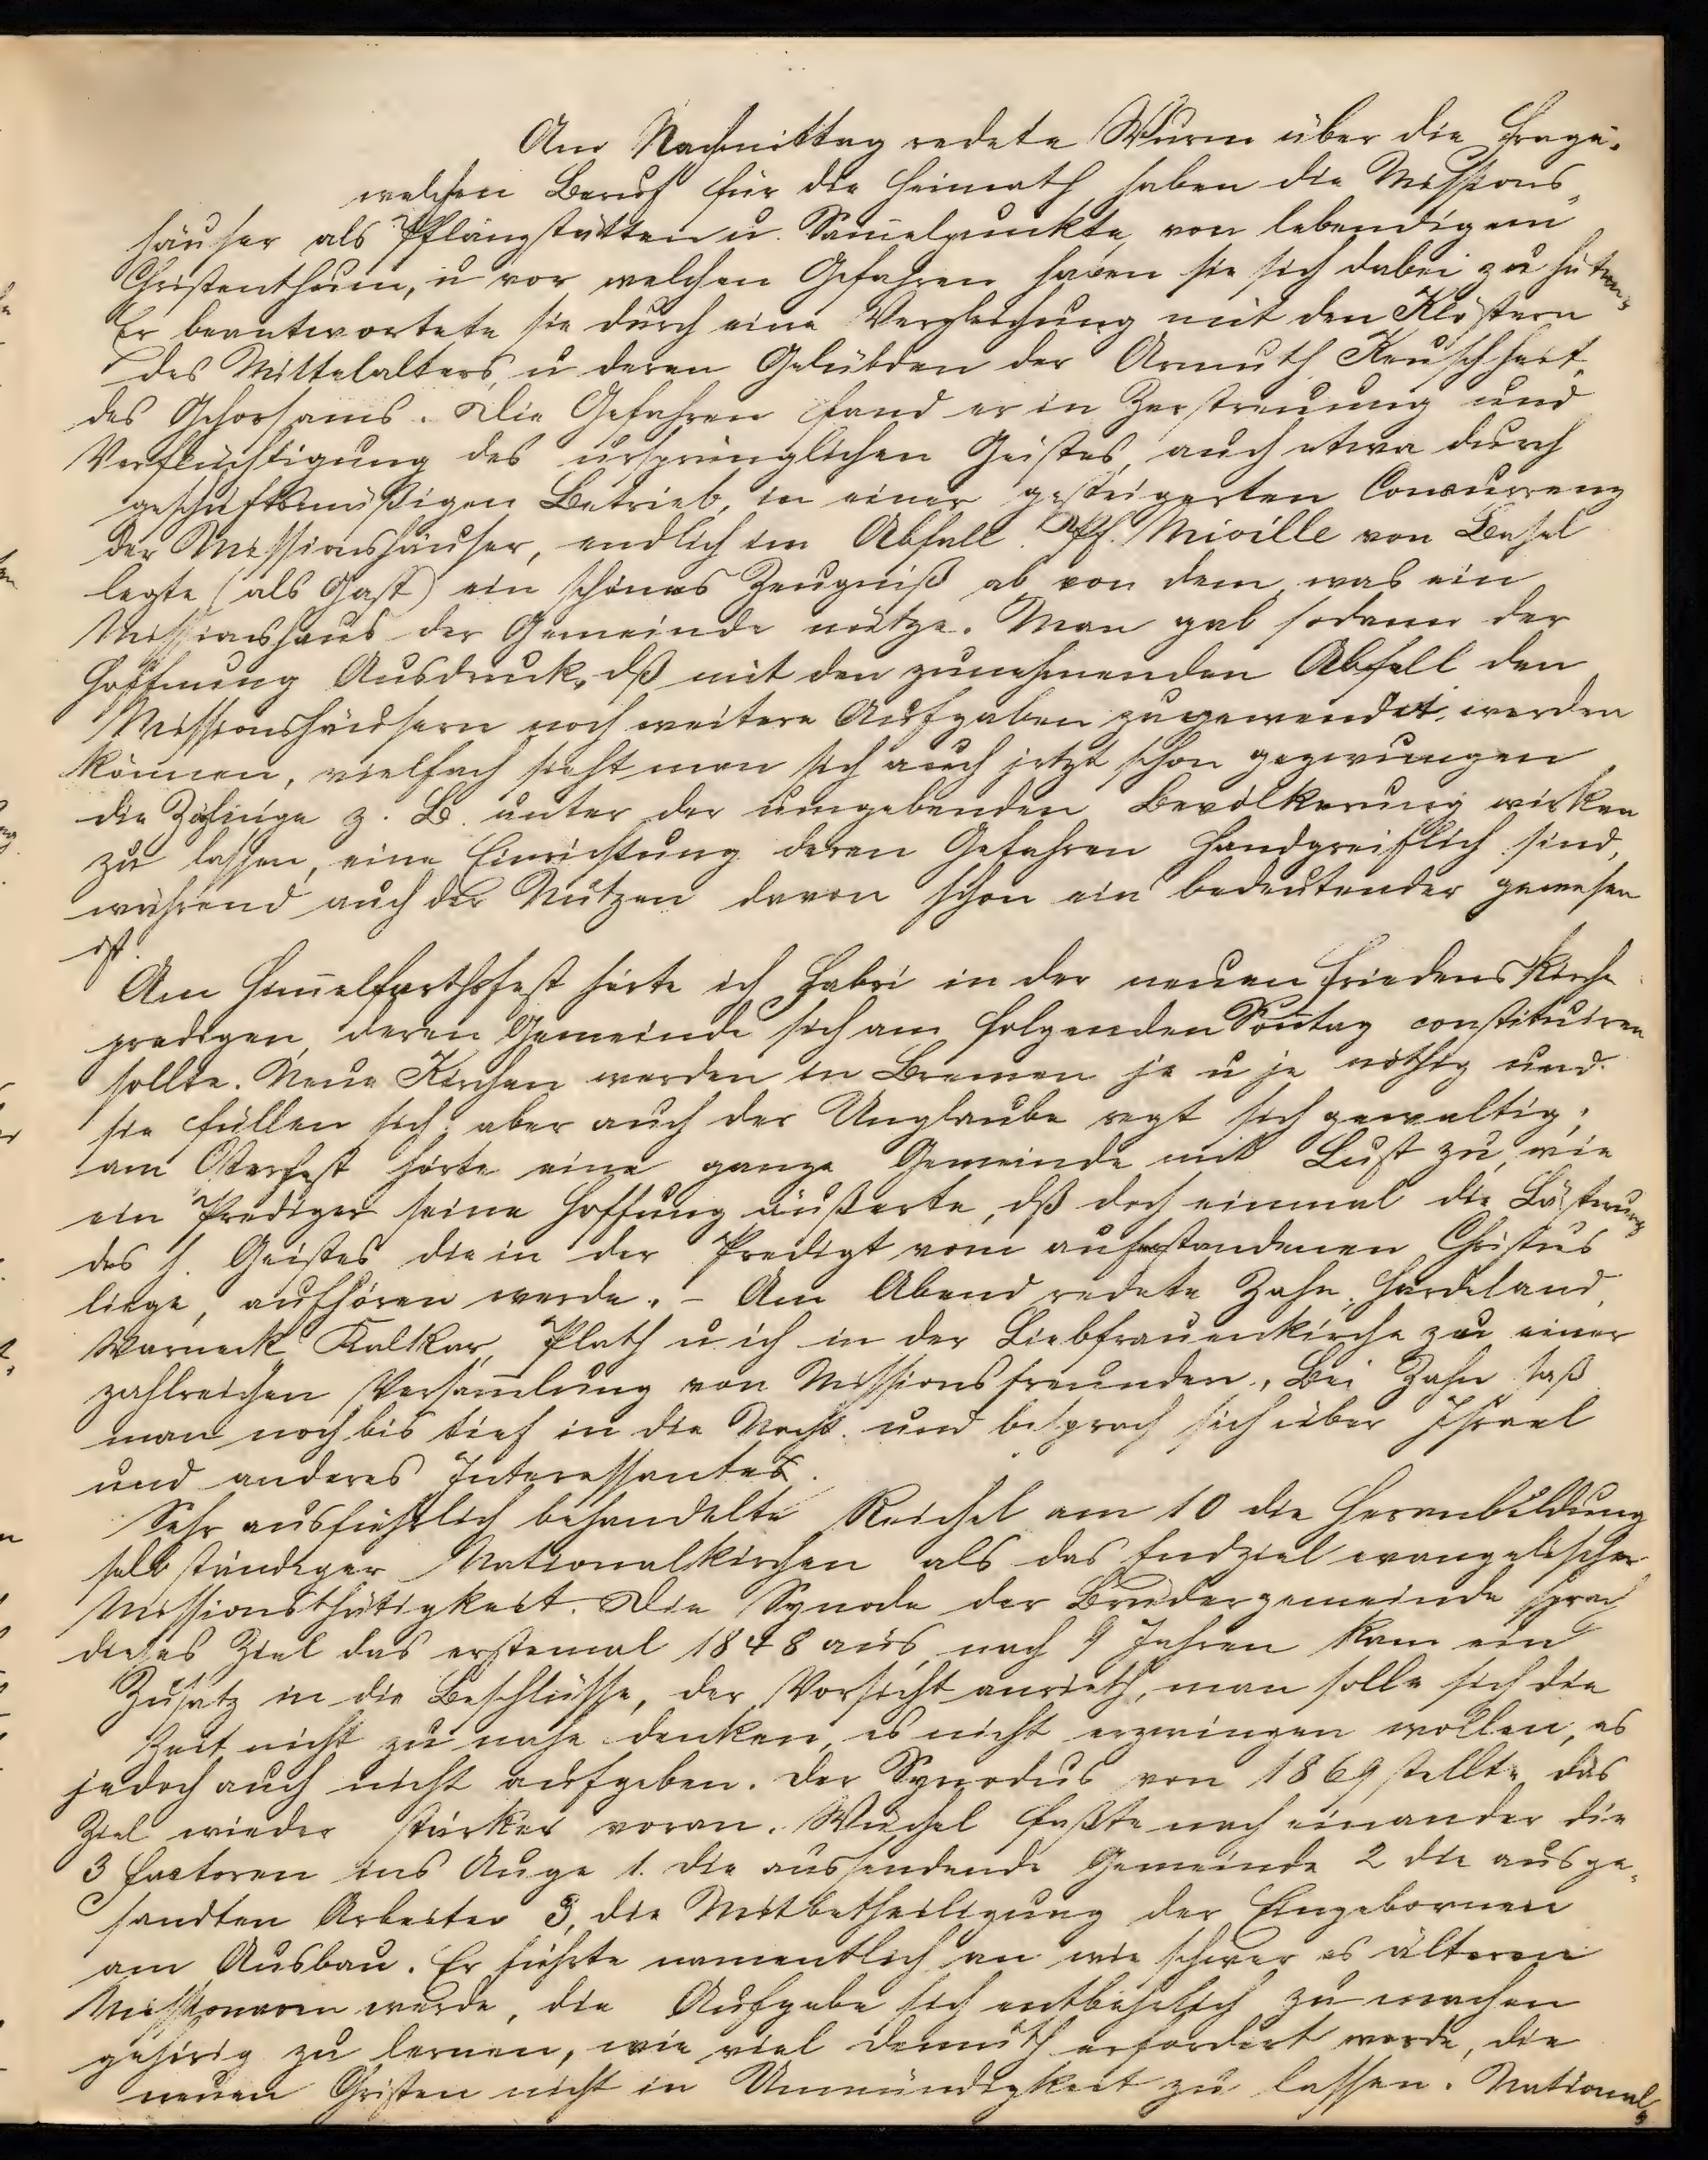 Am Nachmittag redete Wurm über die Frage.
welchen Beruf für die Heimath haben die Missions-
häuser als Pflanzstätten u. Sam̄elpunkte von lebendigem
Christenthum, u vor welchen Gefahren haben sie sich dabei zu hüten.
Er beantwortete sie durch eine Vergleichung mit den Klöstern
des Mittelalters u deren Gelübden der Armuth Keuschheit,
des Gehorsams. Die Gefahren fand er in Zerstreuung und
Verflüchtigung des ursprünglichen Geistes, auch etwa durch
geschäftsmäßigen Betrieb, in einer gesteigerten Concurrenz
der Missionshäuser, endlich im Abfall. Pf. Miville von Basel
legte (als Gast) ein schönes Zeugniß ab von dem was ein
Missionshaus der Gemeinde nütze. Man gab sodann der
Hoffnung Ausdruck, dß mit den zunehmenden Abfall den
Missionshäusern noch weitere Aufgaben zugewendet werden
können, vielfach sieht man sich auch jetzt schon gezwungen
die Zöglinge z. B. unter der umgebenden Bevölkerung wirken
zu lassen, eine Einrichtung deren Gefahren handgreiflich sind,
während auch der Nutzen davon schon ein bedeutender gewesen
ist.
Am Him̄elfarthsfest hörte ich Fabri in der neuen Friedenskirche
predigen, deren Gemeinde sich am folgenden Son̄tag constituiren
sollte. Neue Kirchen werden in Bremen je u je nöthig und
sie füllen sich; aber auch der Unglaube regt sich gewaltig;
am Osterfest hörte eine ganze Gemeinde mit Lust zu, wie
ein Prediger seine Hoffung äußerte, dß doch einmal die Lästerung
des h. Geistes die in der Predigt vom auferstandenen Christus
liege, aufhören werde. – Am Abend redete Zahn, Hardeland,
Warneck, Kalkar, Plath u ich in der Liebfrauenkirche zu einer
zahlreichen Versam̄lung von Missionsfreunden. Bei Zahn saß
man noch bis tief in die Nacht und besprach sich über Israel
und anderes Interessantes.
Sehr ausführlich behandelte Reichel am 10 die Heranbildung
selbständiger Nationalkirchen als das Endziel evangelischer
Missionsthätigkeit. Die Synode der Brudergemeinde sprach
dieses Ziel das erstemal 1848 aus, nach 9 Jahren kam ein
Zusatz in die Beschlüsse, der Vorsicht anrieth, man solle sich die
Zeit nicht zu nahe denken, es nicht erzwingen wollen, es
jedoch auch nicht aufgeben. Der Synodus von 1869 stellte das
Ziel wieder stärker voran. Reichel faßte nach einander die
3 Factoren ins Auge 1. die aussendende Gemeinde 2 die ausge-
sandten Arbeiter 3, die Mitbetheiligung der Eingebornen
am Ausbau. Er führte namentlich an wie schwer es älteren
Missionaren werde, die Aufgabe sich entbehrlich zu machen
gehörig zu lernen, wie viel Demuth erfordert werde, die
neuen Christen nicht in Unmündigkeit zu lassen. National-